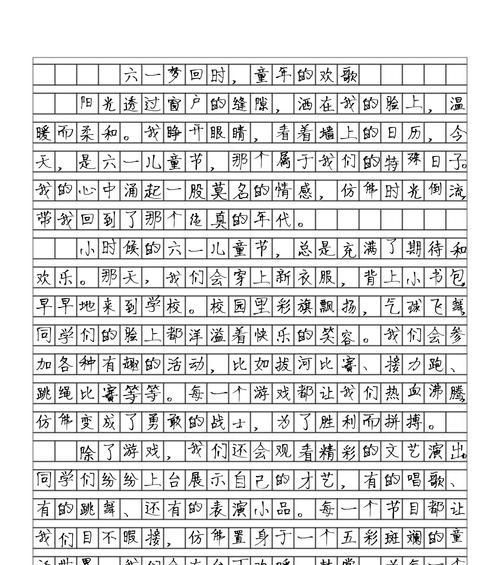 六一梦回时，童年的欢歌
阳光透过窗户的缝隙，洒在我的脸上，温
暖而柔和。我睁开眼睛，看着墙上的日历，今
天，是六一儿童节，那个属于我们的特殊日子。
我的心中涌起一股莫名的情感，仿佛时光倒流，
带我回到了那个纯真的年代。
小时候的六一儿童节，总是充满了期待和
欢乐。那天，我们会穿上新衣服，背上小书包，
早早地来到学校。校园里彩旗飘扬，气球飞舞，
同学们的脸上都洋溢着快乐的笑容。我们会参
加各种有趣的活动，比如拔河比赛、接力跑、
跳绳比赛等等。每一个游戏都让我们热血沸腾，
仿佛变成了勇敢的战士，为了胜利而拼搏。
除了游戏，我们还会观看精彩的文艺演出。
同学们纷纷上台展示自己的才艺，有的唱歌、
有的跳舞、还有的表演小品。每一个节目都让
我们目不暇接，仿佛置身于一个五彩斑斓的童